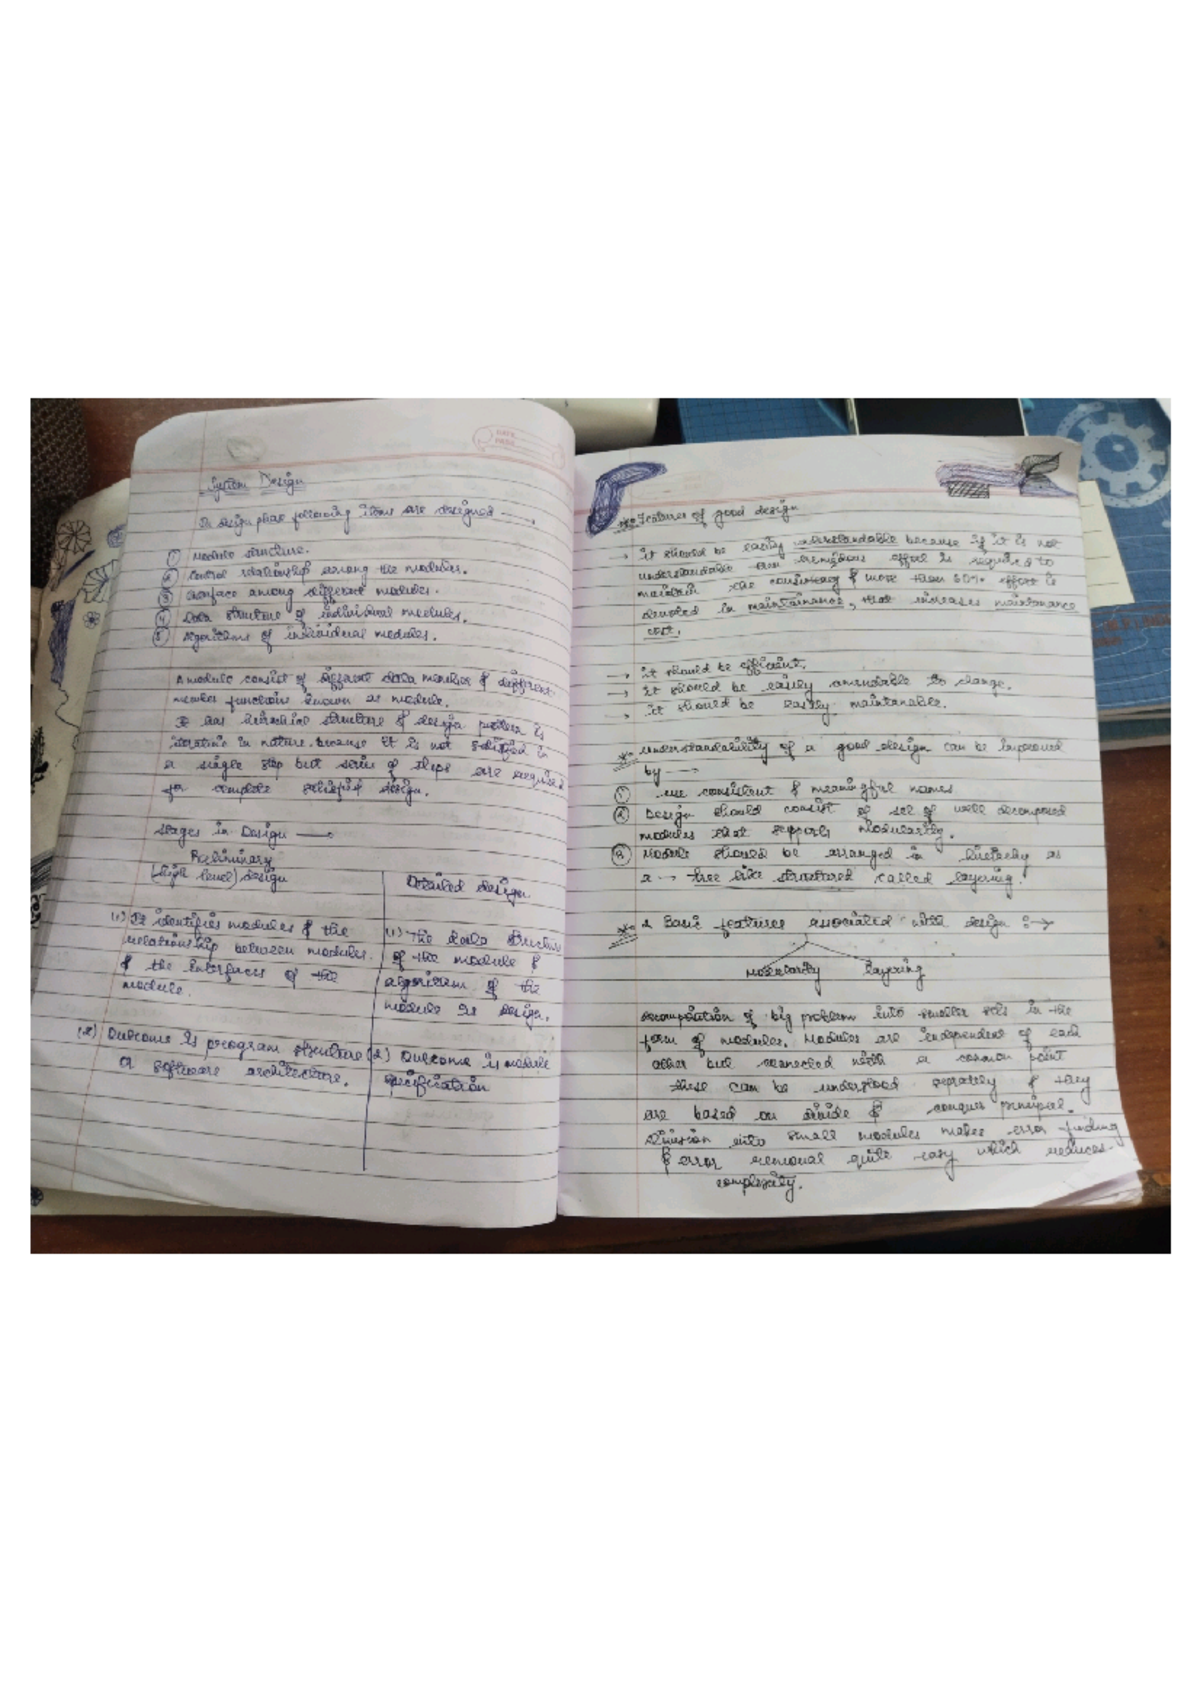 System Design
In design phase following items are designed →
① Module structure.
② Control relationship among the modules.
③ Interface among different modules.
④ Data structure of individual modules.
⑤ Algorithms of individual modules.
A module consist of different data member & different
member function known as module.
It has structure & design problem is
iterative in nature because it is not in
a single step but series of steps are required
for complete design.
Stages in Design →
Preliminary
(High level) design
(1) It identifies modules & the
relationship between modules.
& the interfaces of the
module.
(2) Outcome is program structure
or software architecture.
Detailed design
(1) The data structure
of the module &
algorithm of the
module is design.
(2) Outcome is module
specification
DATE
PAGE
Features of good design
→ it should be easily understandable because if it is not
understandable effort is required to
maintain the & more than 60% effort is
devoted in maintainance, that increases maintenance
cost.
→ it should be efficient.
→ it should be easily amendable to change.
→ it should be easily maintanable.
* understandability of a good design can be improved
by →
① use consistent & meaningful names
② Design should consist of set of well decomposed
modules that supports modularity.
③ Module should be arranged in as
a → tree like structured called layering.
* 2 Basic features associated with design :→
modularity layering
decomposition of big problem into smaller in the
form of modules. Modules are independent of each
other but connected with a common point
these can be understood & they
are based on divide & conquer
Division into small modules makes error finding
& error removal quite easy which reduces
complexity.